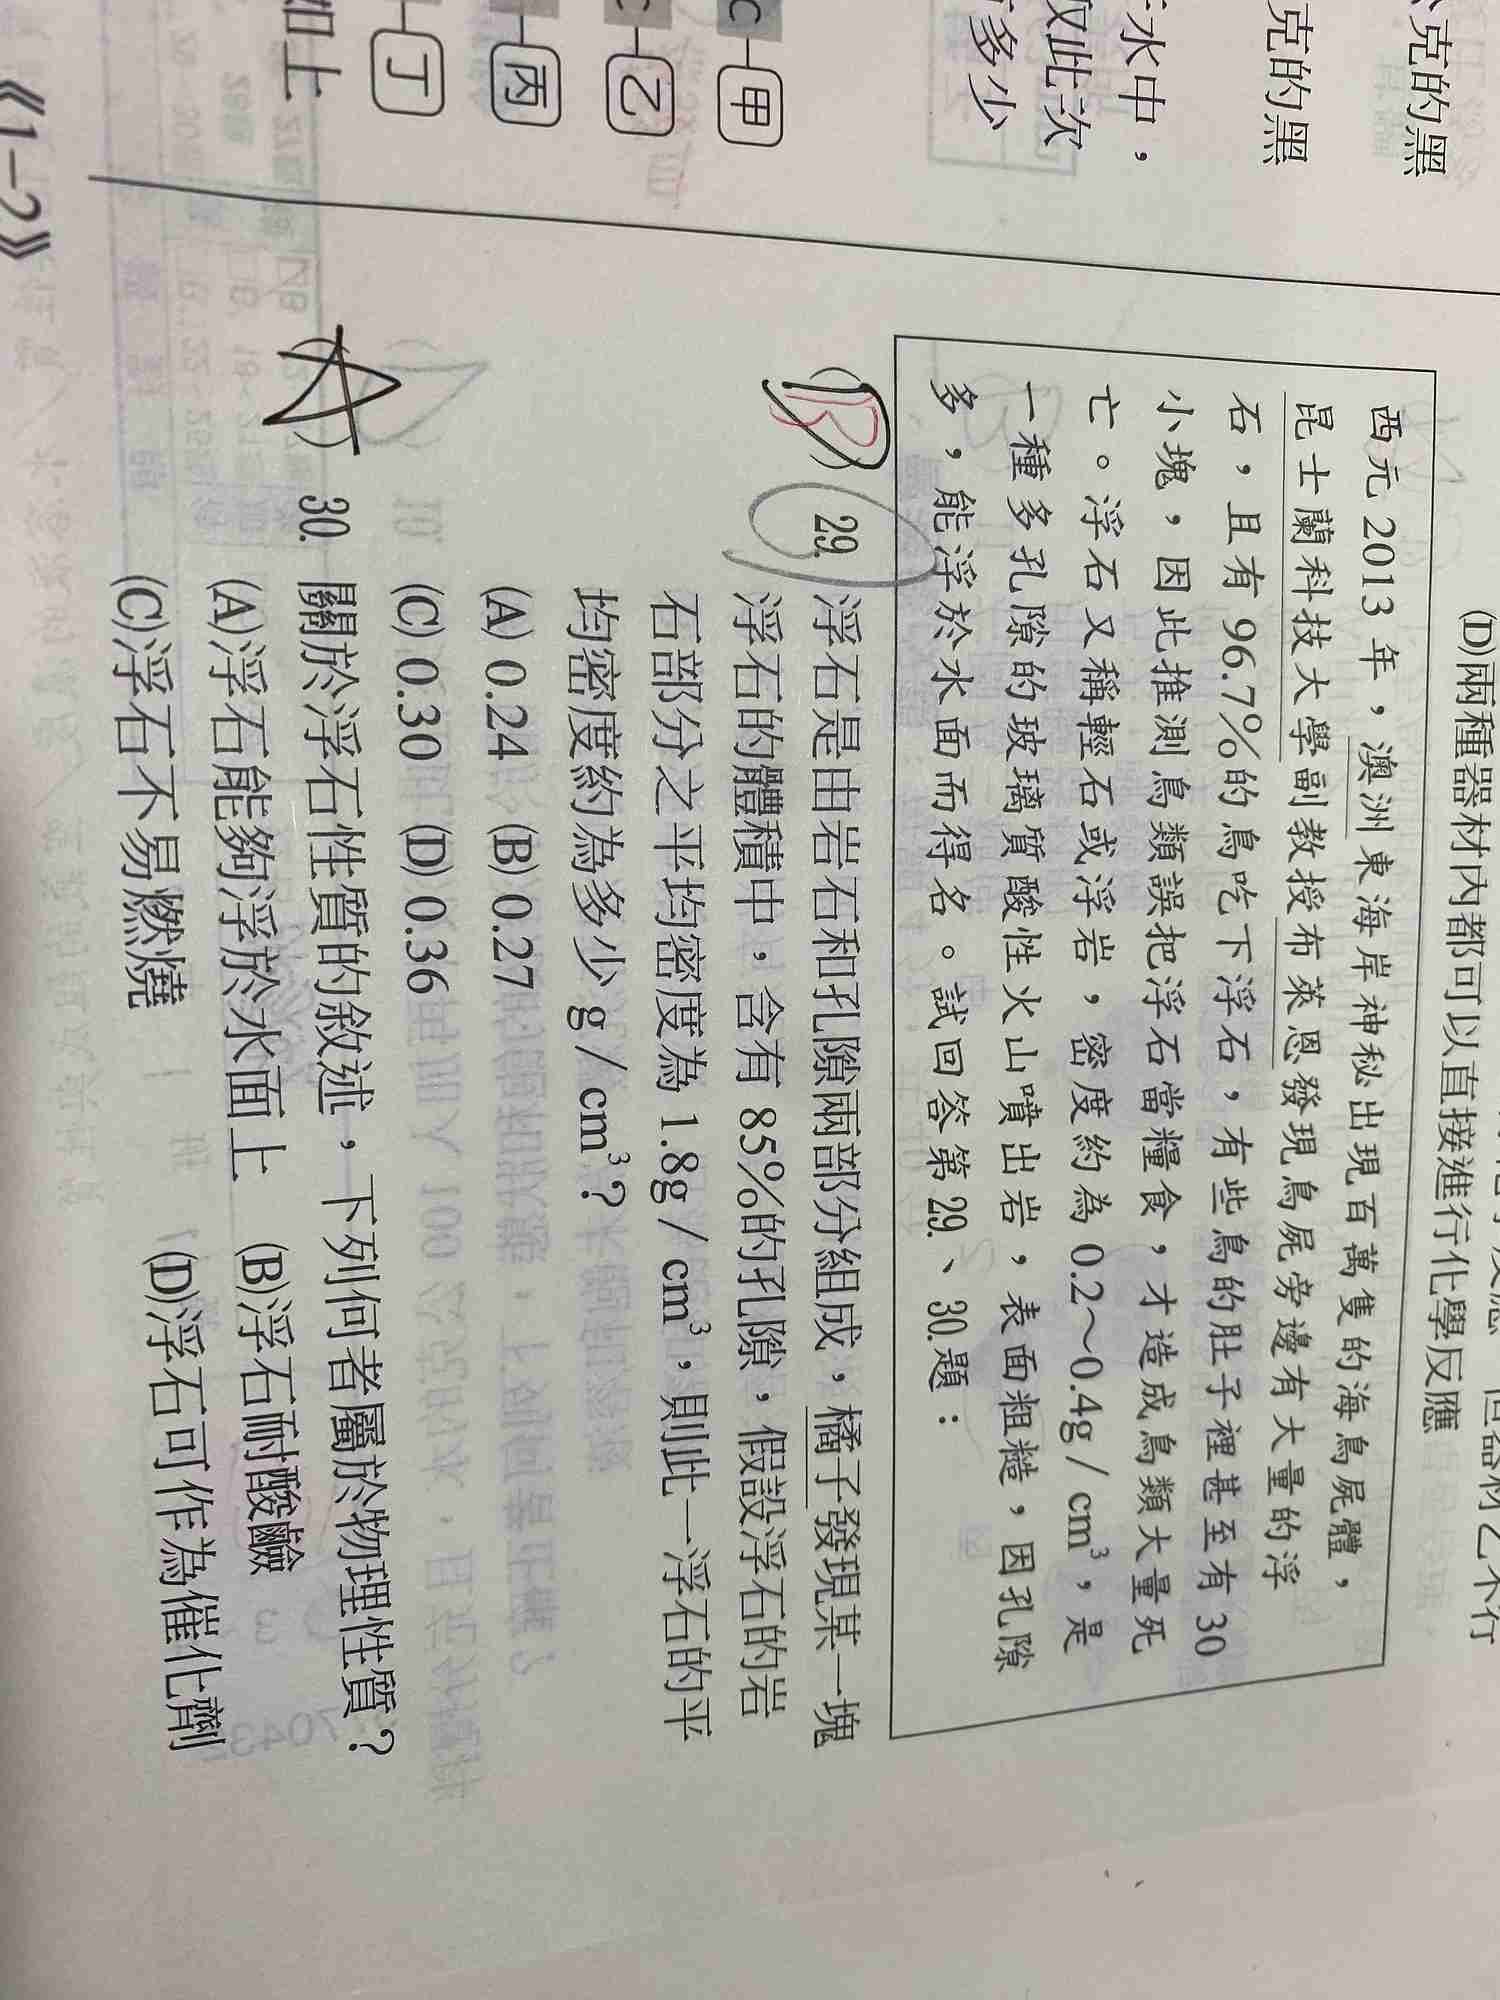 克的黑
克的黑
水中，
取此次
多少
C 甲
乙
丙
丁
如上
《1-2》
(D)兩種器材內都可以直接進行化學反應
西元 2013 年，澳洲東海岸神秘出現百萬隻的海鳥屍體，
昆士蘭科技大學副教授布萊恩發現鳥屍旁邊有大量的浮
石，且有 96.7%的鳥吃下浮石，有些鳥的肚子裡甚至有 30
小塊，因此推測鳥類誤把浮石當糧食，才造成鳥類大量死
亡。浮石又稱輕石或浮岩，密度約為 0.2～0.4g / cm³，是
一種多孔隙的玻璃質酸性火山噴出岩，表面粗糙，因孔隙
多，能浮於水面而得名。試回答第 29.、30.題：
(B) 29. 浮石是由岩石和孔隙兩部分組成，橘子發現某一塊
浮石的體積中，含有 85%的孔隙，假設浮石的岩
石部分之平均密度為 1.8g / cm³，則此一浮石的平
均密度約為多少 g / cm³？
(A) 0.24 (B) 0.27
(C) 0.30 (D) 0.36
(A) 30. 關於浮石性質的敘述，下列何者屬於物理性質？
(A)浮石能夠浮於水面上 (B)浮石耐酸鹼
(C)浮石不易燃燒 (D)浮石可作為催化劑